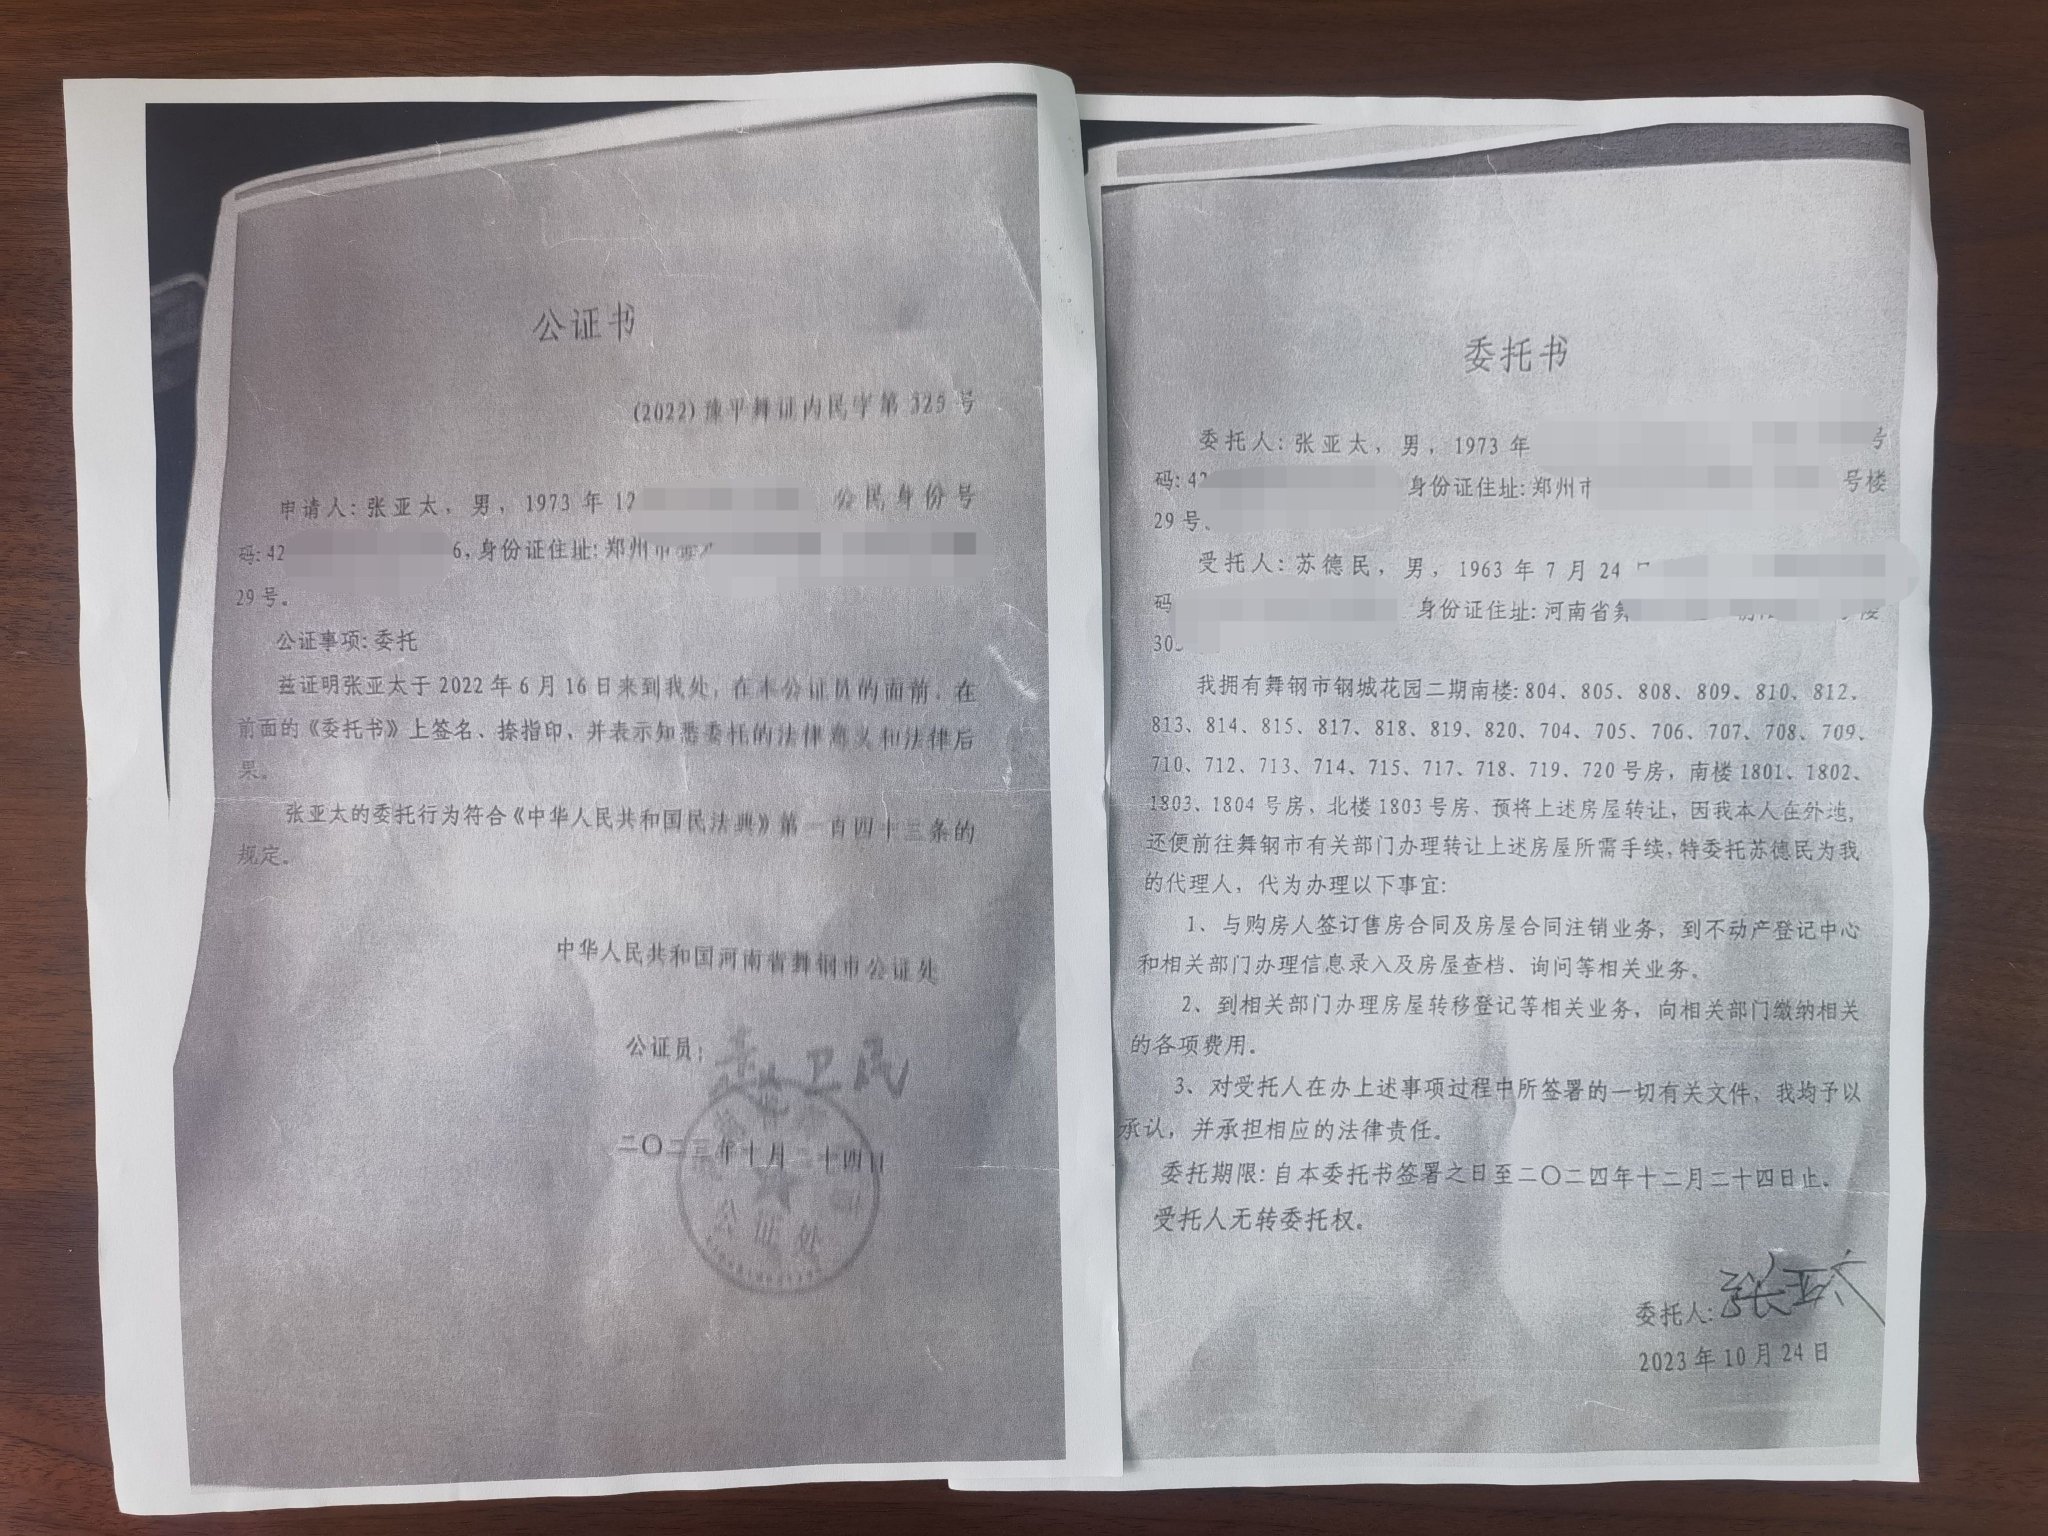 公证书
(2022)豫平舞证内民字第325号
申请人:张亚太，男，1973年12 公民身份号
码:42 6,身份证住址:郑州市
29号。
公证事项:委托
兹证明张亚太于2022年6月16日来到我处,在本公证员的面前,在
前面的《委托书》上签名、捺指印,并表示知悉委托的法律意义和法律后
果。
张亚太的委托行为符合《中华人民共和国民法典》第一百四十三条的
规定。
中华人民共和国河南省舞钢市公证处
公证员: 卫民
二〇二三年十月二十四日
公证处
委托书
委托人:张亚太，男，1973年 号
码:42 身份证住址:郑州市 号楼
29号。
受托人:苏德民，男，1963年7月24
码 身份证住址:河南省舞 楼
30
我拥有舞钢市钢城花园二期南楼:804、805、808、809、810、812、
813、814、815、817、818、819、820、704、705、706、707、708、709、
710、712、713、714、715、717、718、719、720号房，南楼1801、1802、
1803、1804号房，北楼1803号房，预将上述房屋转让，因我本人在外地,
还便前往舞钢市有关部门办理转让上述房屋所需手续,特委托苏德民为我
的代理人，代为办理以下事宜:
1、与购房人签订售房合同及房屋合同注销业务，到不动产登记中心
和相关部门办理信息录入及房屋查档、询问等相关业务。
2、到相关部门办理房屋转移登记等相关业务，向相关部门缴纳相关
的各项费用。
3、对受托人在办上述事项过程中所签署的一切有关文件，我均予以
承认，并承担相应的法律责任。
委托期限:自本委托书签署之日至二〇二四年十二月二十四日止。
受托人无转委托权。
委托人:张亚太
2023年10月24日